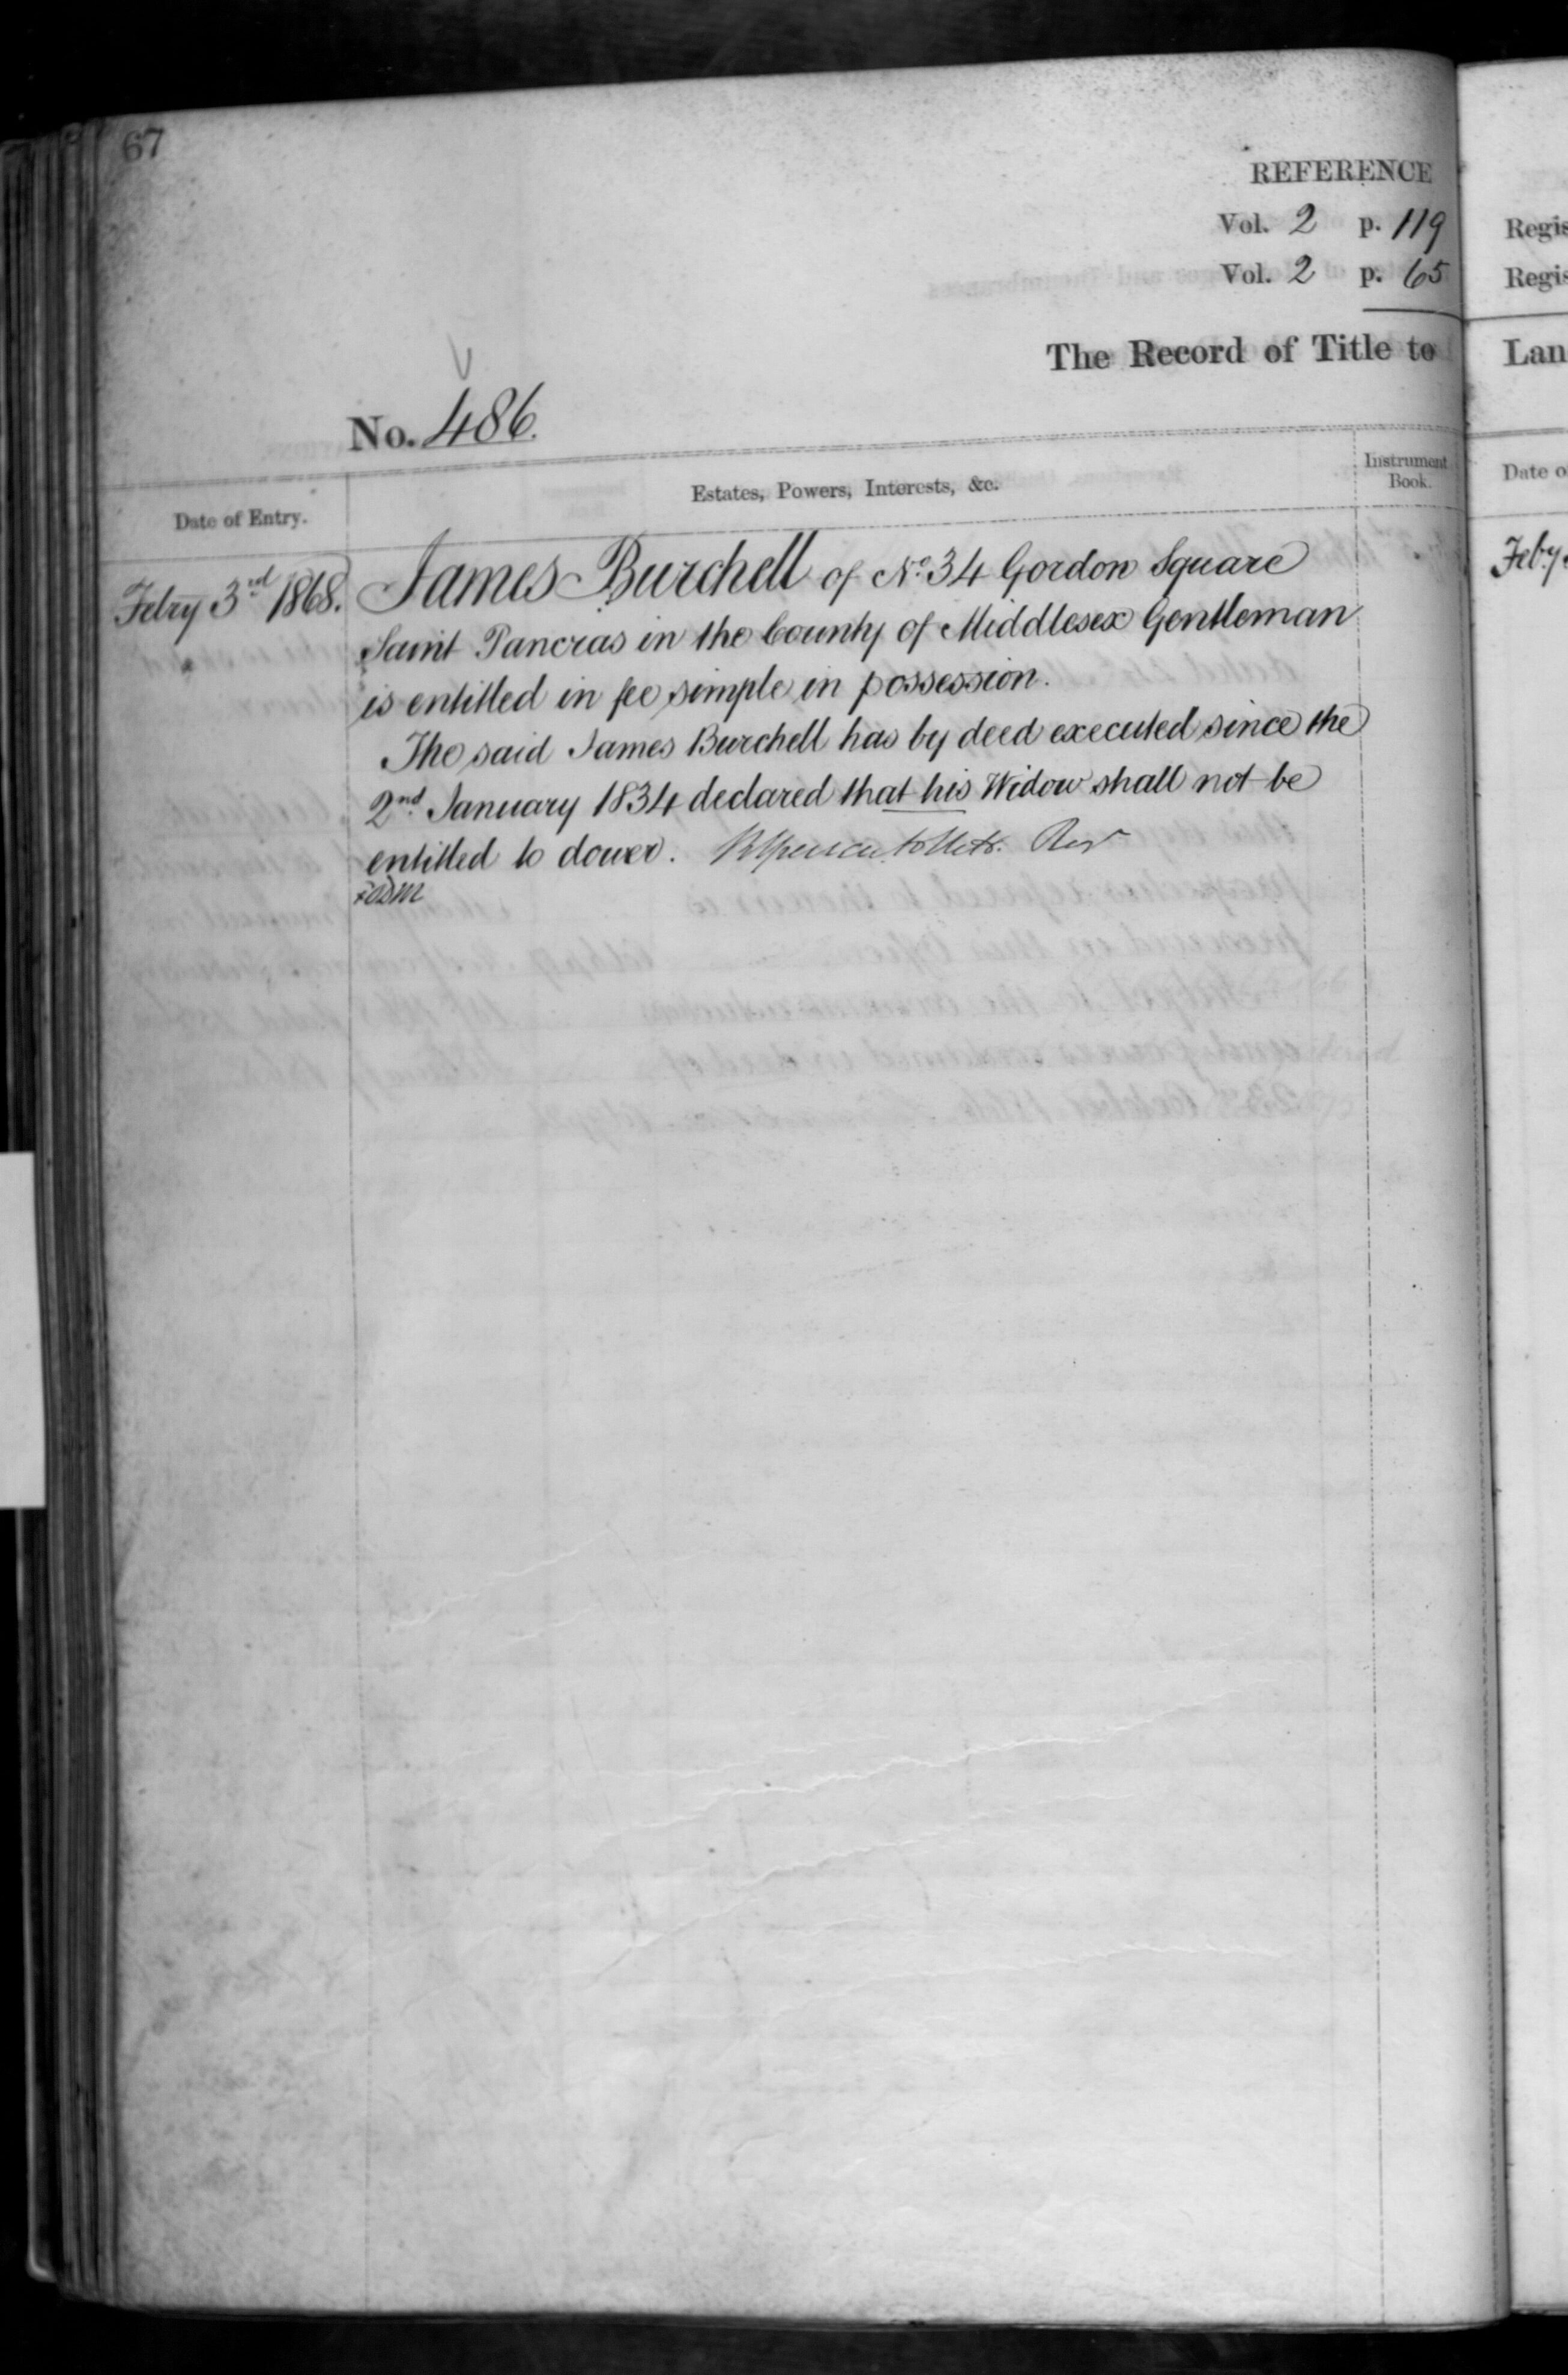 67
REFERENCE
Vol. 2 p. 119
Vol. 2 p. 65
The Record of Title to
No. 486.
Date of Entry.
Estates, Powers, Interests, &c.
Instrument Book.
Febry 3rd 1868.
James Burchell of No. 34 Gordon Square
Saint Pancras in the County of Middlesex Gentleman
is entitled in fee simple in possession.
The said James Burchell has by deed executed since the
2nd January 1834 declared that his Widow shall not be
entitled to dower.
Regis
Regis
Lan
Date o
Feby